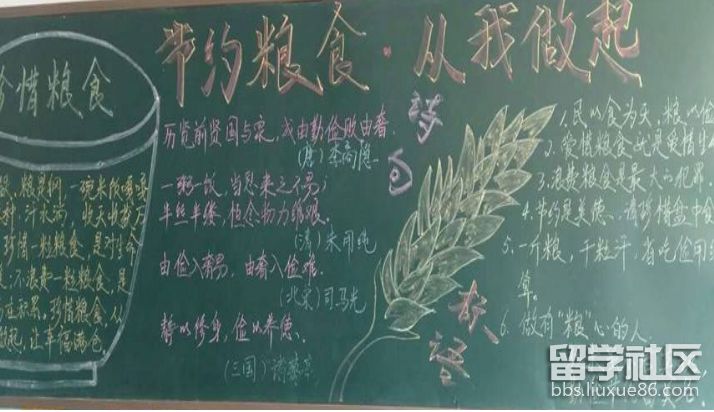 节约粮食·从我做起
珍惜粮食
历览前贤国与家，成由勤俭败由奢。
(唐)李商隐
一粥一饭，当思来之不易；
半丝半缕，恒念物力维艰。
(清)朱用纯
由俭入奢易，由奢入俭难。
(北宋)司马光
静以修身，俭以养德。
(三国)诸葛亮
1.民以食为天，粮以俭
2.爱惜粮食就是爱惜生
3.浪费粮食是最大的犯罪
4.节约是美德，请珍惜盘中食
5.一个粮，千粒汗，省吃俭用
算。
6.做有“粮”心的人
珍惜一粒粮食，是对生命
不浪费一粒粮食，是
珍惜粮食，从
起，让幸福满仓
留学社区
bbs.liuxue86.com